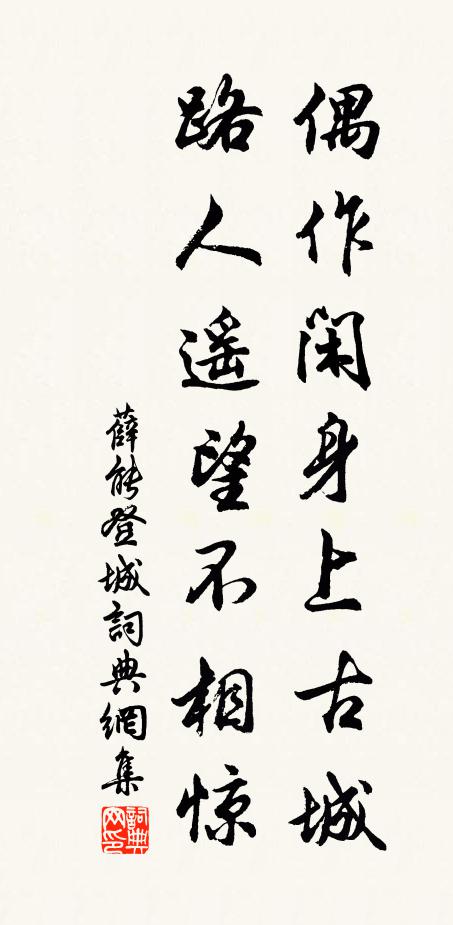 偶作闲身上古城
路人遥望不相惊
薛能登城詞典網集
詞典网印